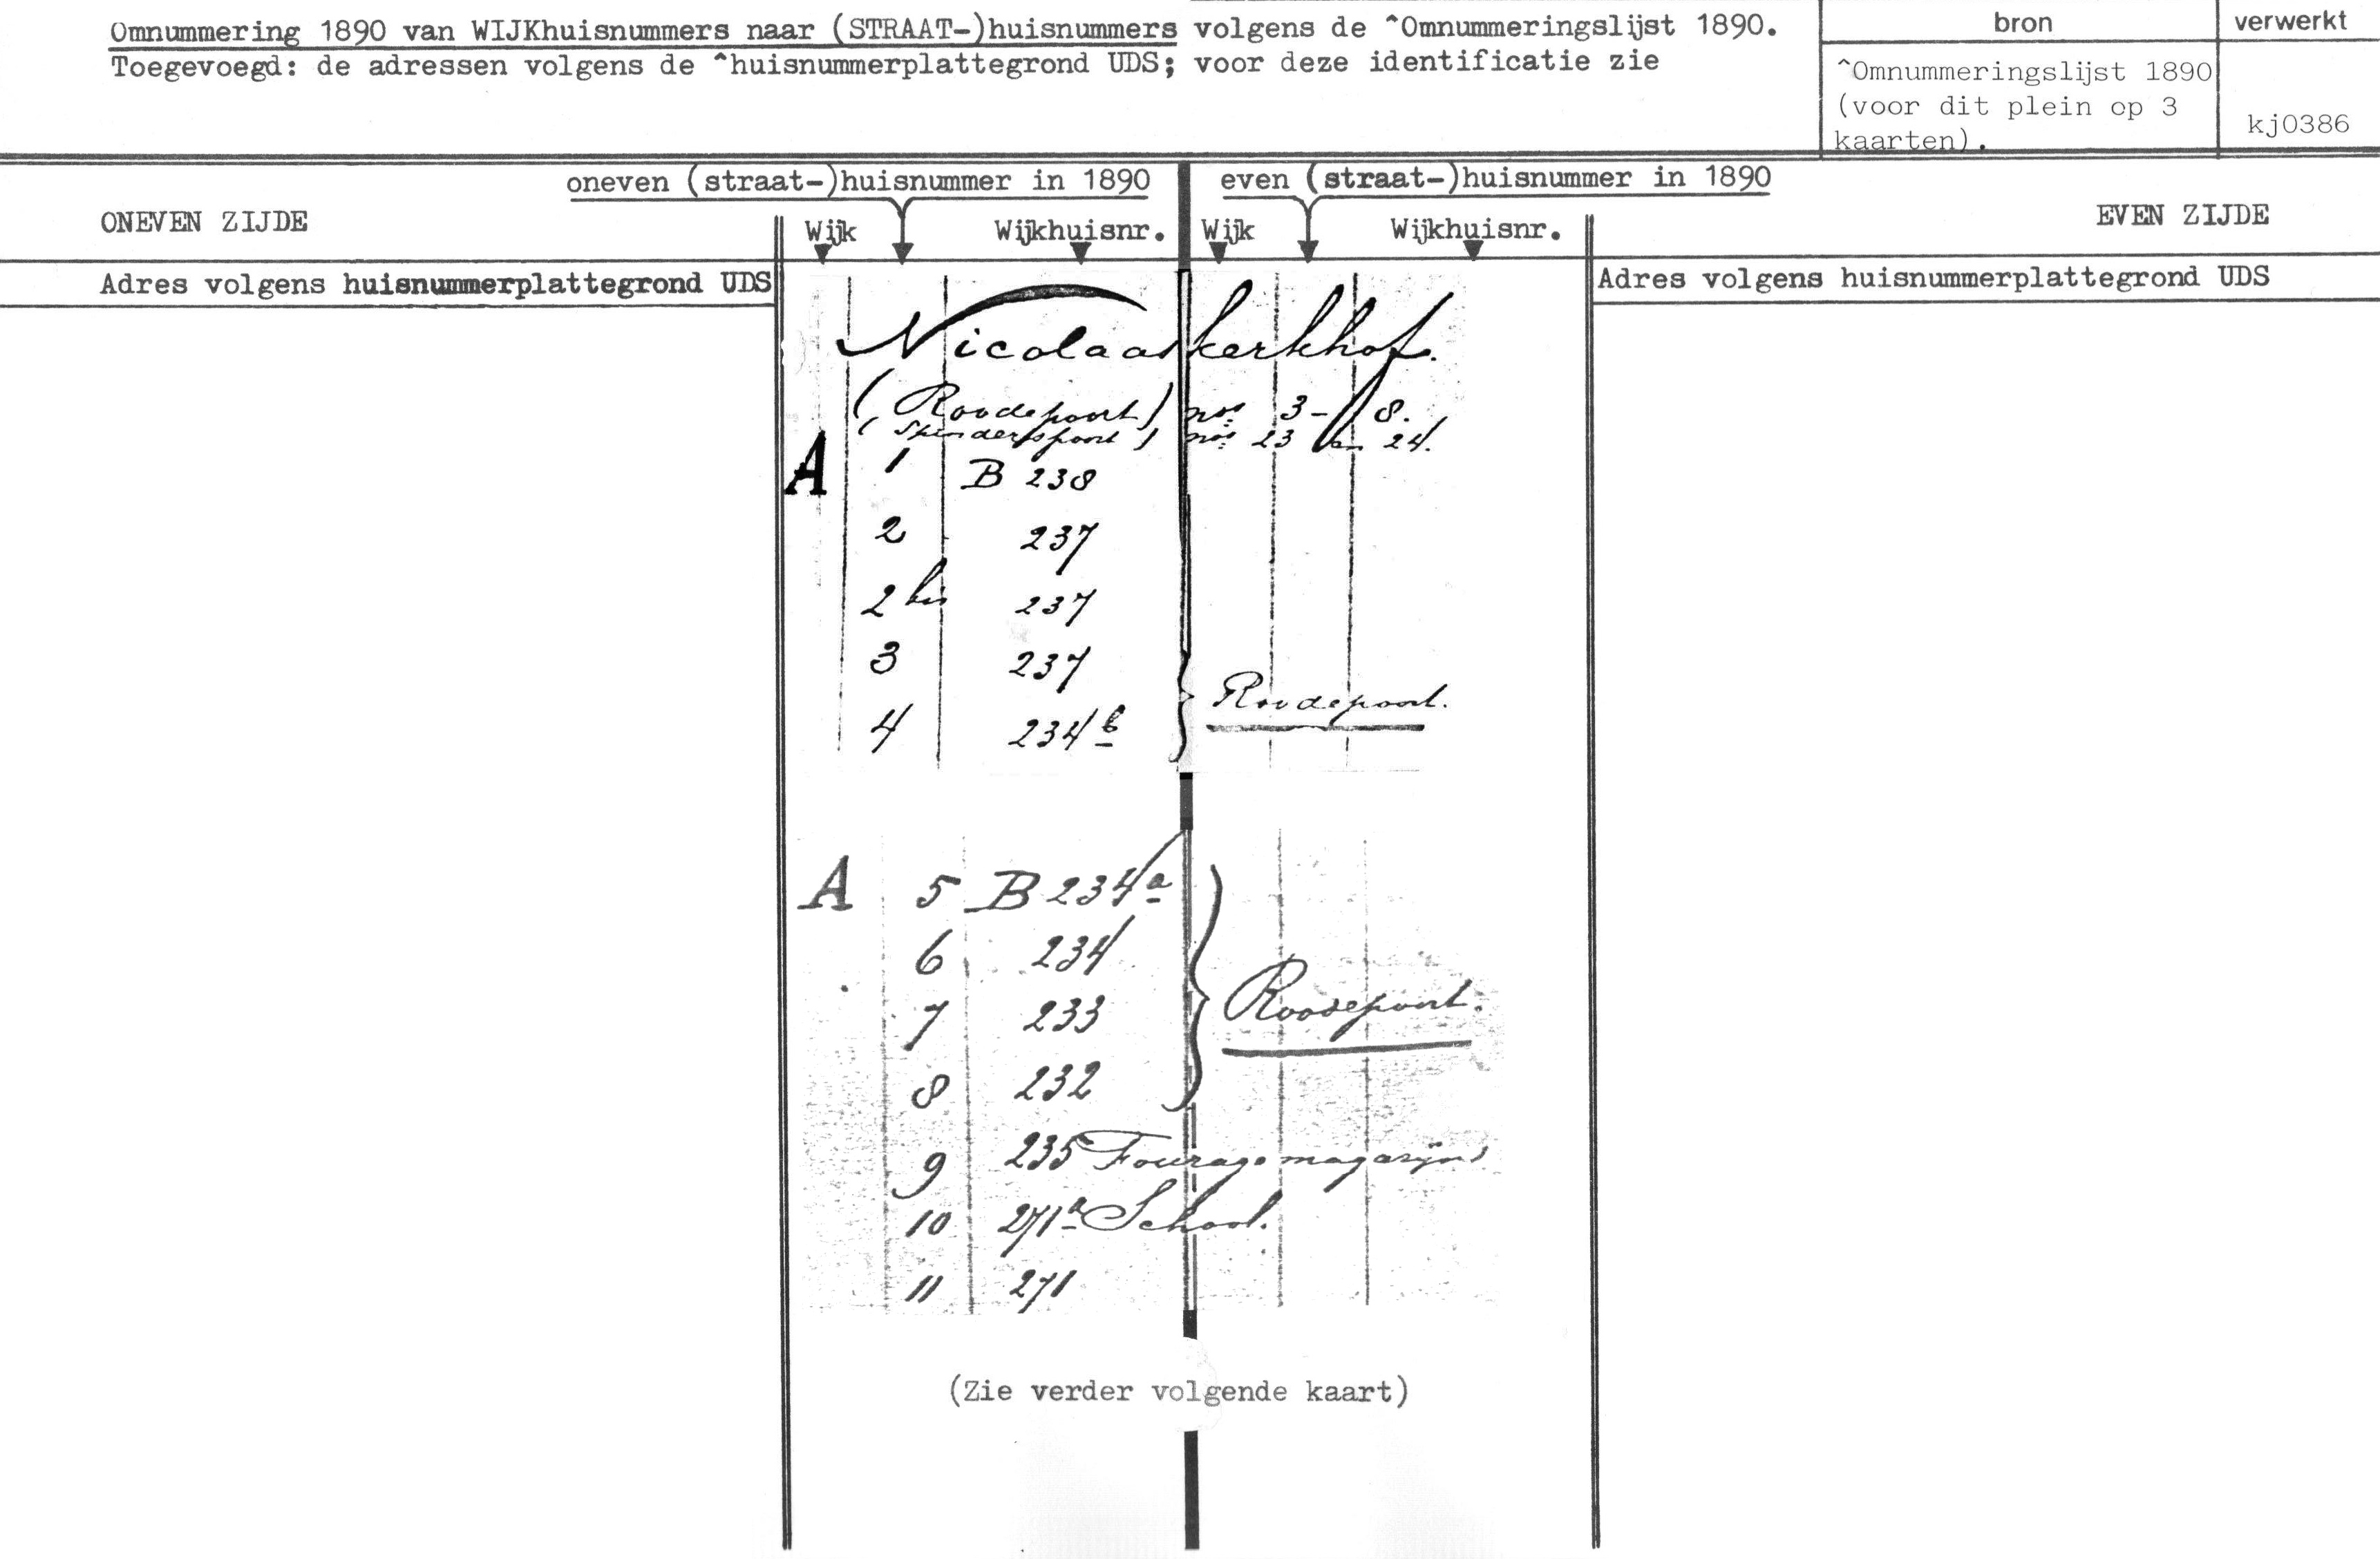 Omnummering 1890 van WIJKhuisnummers naar (STRAAT-)huisnummers volgens de ^Omnummeringslijst 1890.
Toegevoegd: de adressen volgens de ^huisnummerplattegrond UDS; voor deze identificatie zie
bron
verwerkt
^Omnummeringslijst 1890
(voor dit plein op 3
kaarten).
kj0386
oneven (straat-)huisnummer in 1890
even (straat-)huisnummer in 1890
ONEVEN ZIJDE
Wijk
Wijkhuisnr.
Wijk
Wijkhuisnr.
EVEN ZIJDE
Adres volgens huisnummerplattegrond UDS
Adres volgens huisnummerplattegrond UDS
Nicolaaskerkhof.
(Roodepoort) nos 3-8.
(Spinderspoort) nos 23 en 24.
A 1 B 238
2 237
2 bis 237
3 237
Roodepoort.
4 234b
A 5 B 234a
6 234
Roodepoort.
7 233
8 232
9 235 Fouragemagazijn
10 271a School.
11 271
(Zie verder volgende kaart)